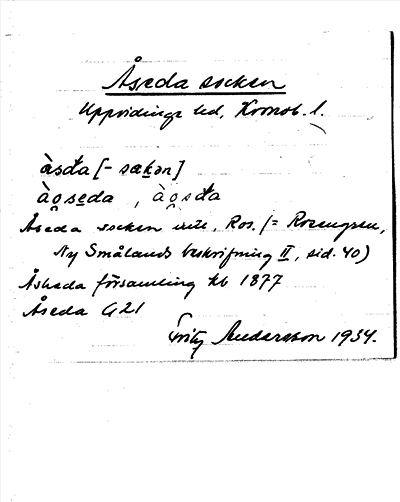 Åseda socken
Uppvidinge hd, Kronob. l.
àsđa [- sækən]
ào̯seda, ào̯sđa
Åseda socken Ros. (= Rosengren,
Ny Smålands beskrifning II, sid. 40)
Åsheda församling kb 1877
Åseda G21
Fritz Andersson 1934.